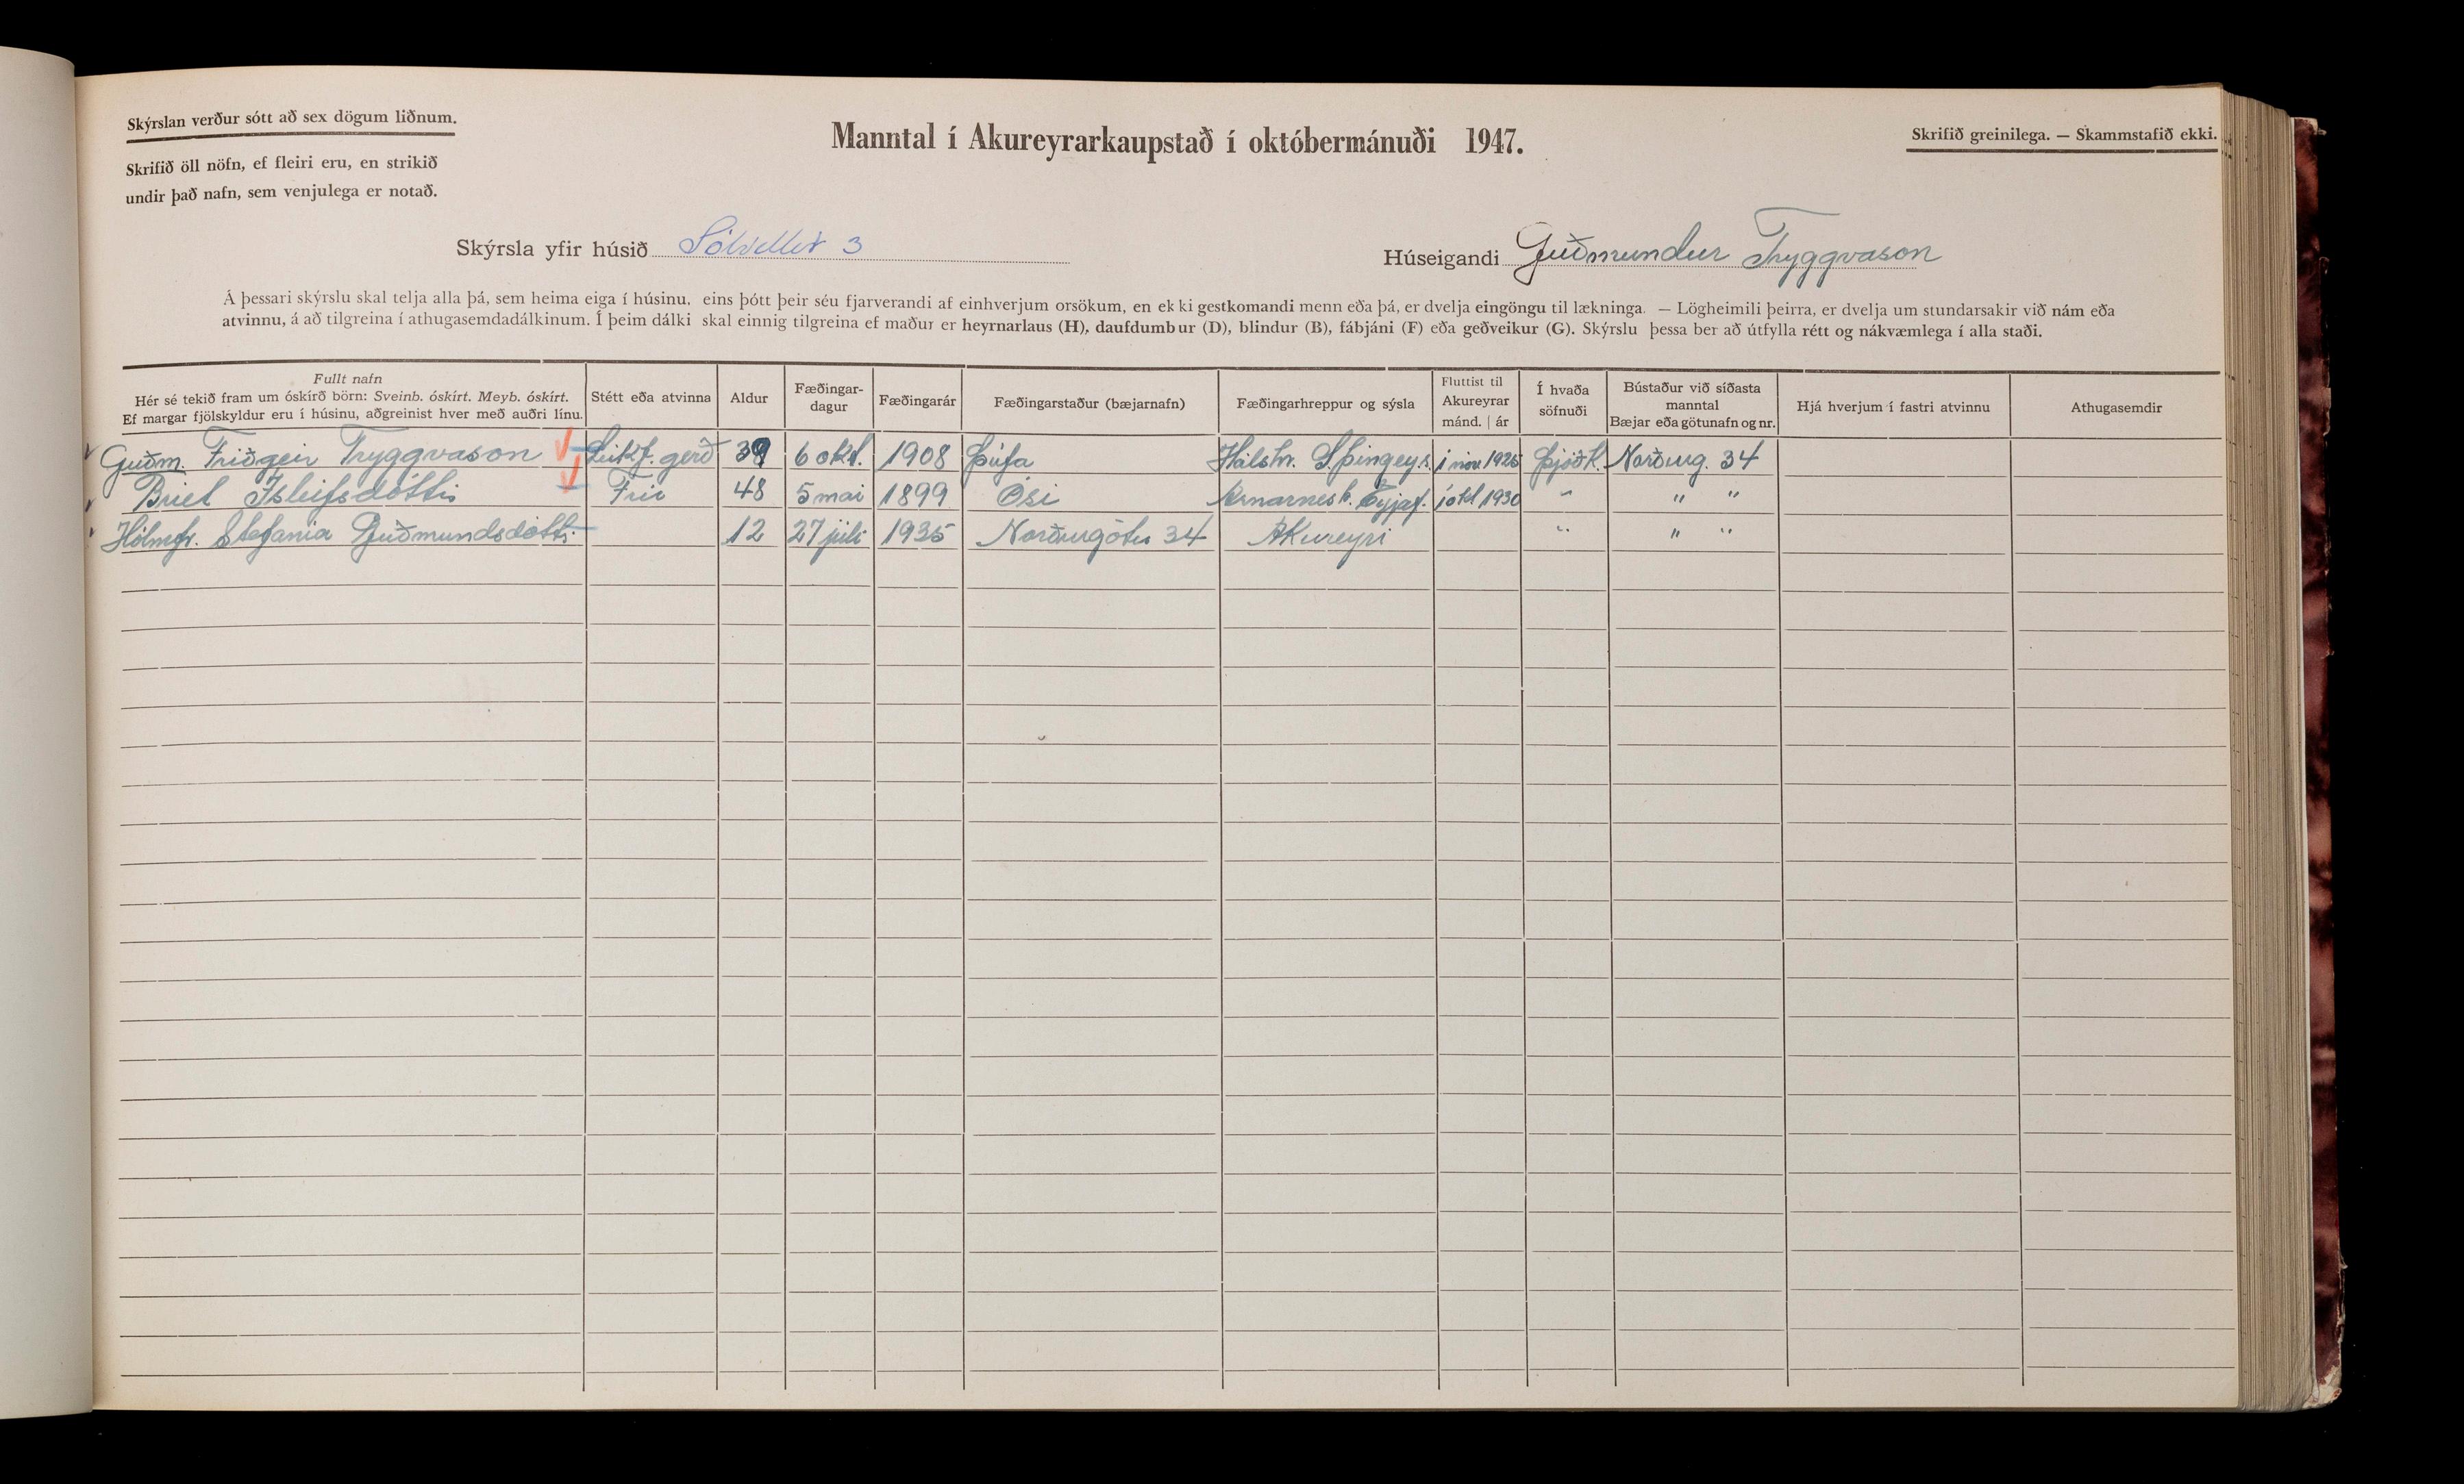 Skýrslan verður sótt að sex dögum liðnum.
Skrifið öll nöfn, ef fleiri eru, en strikið
undir það nafn, sem venjulega er notað.
Manntal í Akureyrarkaupstað í októbermánuði 1947.
Skrifið greinilega. — Skammstafið ekki.
Skýrsla yfir húsið Sólvellir 3
Húseigandi Guðmundur Tryggvason
Á þessari skýrslu skal telja alla þá, sem heima eiga í húsinu, eins þótt þeir séu fjarverandi af einhverjum orsökum, en ekki gestkomandi menn eða þá, er dvelja eingöngu til lækninga. — Lögheimili þeirra, er dvelja um stundarsakir við nám eða
atvinnu, á að tilgreina í athugasemdadálkinum. Í þeim dálki skal einnig tilgreina ef maður er heyrnarlaus (H), daufdumbur (D), blindur (B), fábjáni (F) eða geðveikur (G). Skýrslu þessa ber að útfylla rétt og nákvæmlega í alla staði.
Fullt nafn
Hér sé tekið fram um óskírð börn: Sveinb. óskírt. Meyb. óskírt.
Ef margar fjölskyldur eru í húsinu, aðgreinist hver með auðri línu.
Stétt eða atvinna
Aldur
Fæðingar-
dagur
Fæðingarár
Fæðingarstaður (bæjarnafn)
Fæðingarhreppur og sýsla
Fluttist til
Akureyrar
mánd. | ár
Í hvaða
söfnuði
Bústaður við síðasta
manntal
Bæjar eða götunafn og nr.
Hjá hverjum í fastri atvinnu
Athugasemdir
Guðm. Friðgeir Tryggvason Leikf. gerð 39 6 okt. 1908 Þúfa Hálshr. S. Þingeys. í nóv. 1925 Þjóðk. Norðurg. 34
Briet Isleifsdóttir Frú 48 5 mai 1899 Ósi Arnarnesh. Eyjaf. í okt 1930 " " "
Hólmfr. Stefania Guðmundsdóttir 12 27 júli 1935 Norðurgötu 34 Akureyri " " "